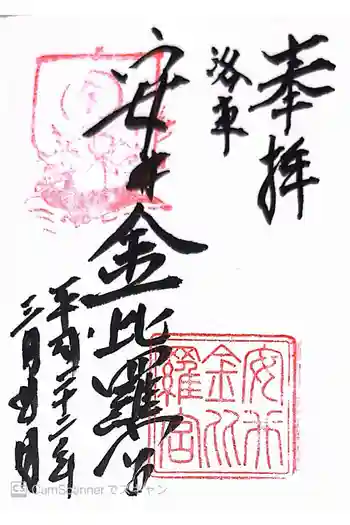 奉拝
洛東
安井金比羅宮
平成二十二年
三月
安井
金比
羅宮
CS CamScanner でスキャン